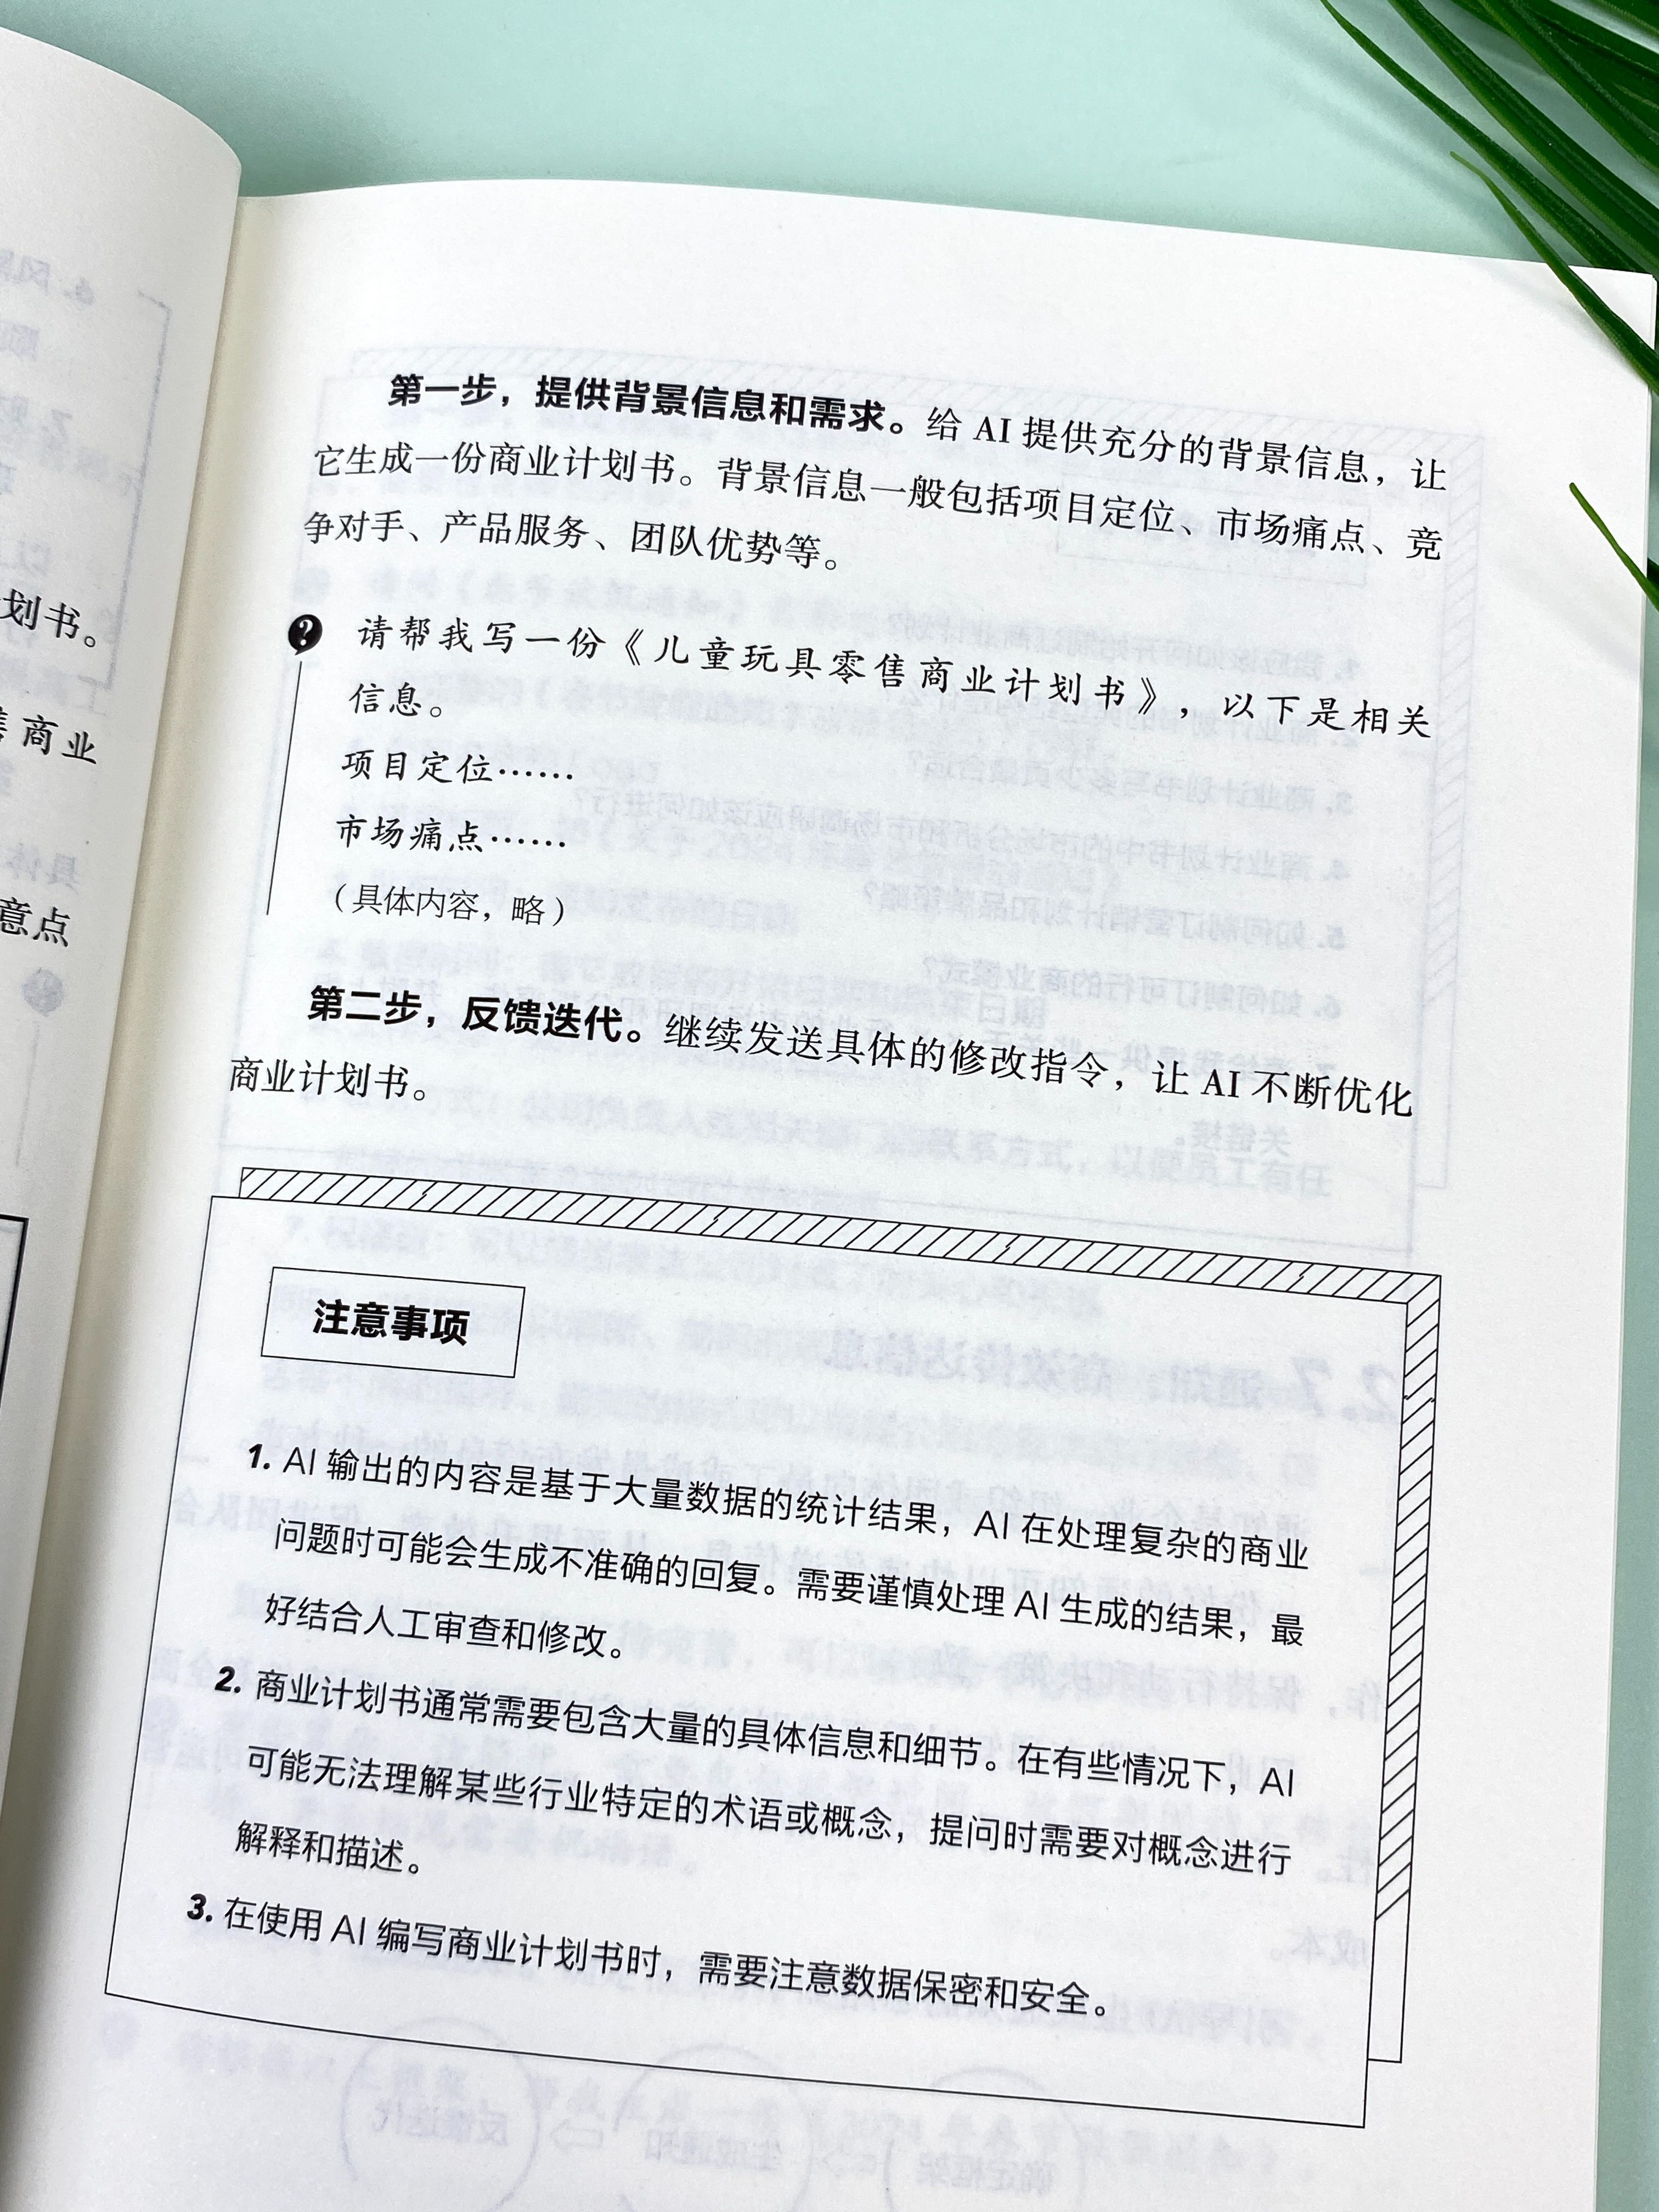 划书。
商业
意点
第一步，提供背景信息和需求。给 AI 提供充分的背景信息，让
它生成一份商业计划书。背景信息一般包括项目定位、市场痛点、竞
争对手、产品服务、团队优势等。
? 请帮我写一份《儿童玩具零售商业计划书》，以下是相关
信息。
项目定位……
市场痛点……
（具体内容，略）
第二步，反馈迭代。继续发送具体的修改指令，让 AI 不断优化
商业计划书。
注意事项
1. AI 输出的内容是基于大量数据的统计结果，AI 在处理复杂的商业
问题时可能会生成不准确的回复。需要谨慎处理 AI 生成的结果，最
好结合人工审查和修改。
2. 商业计划书通常需要包含大量的具体信息和细节。在有些情况下，AI
可能无法理解某些行业特定的术语或概念，提问时需要对概念进行
解释和描述。
3. 在使用 AI 编写商业计划书时，需要注意数据保密和安全。